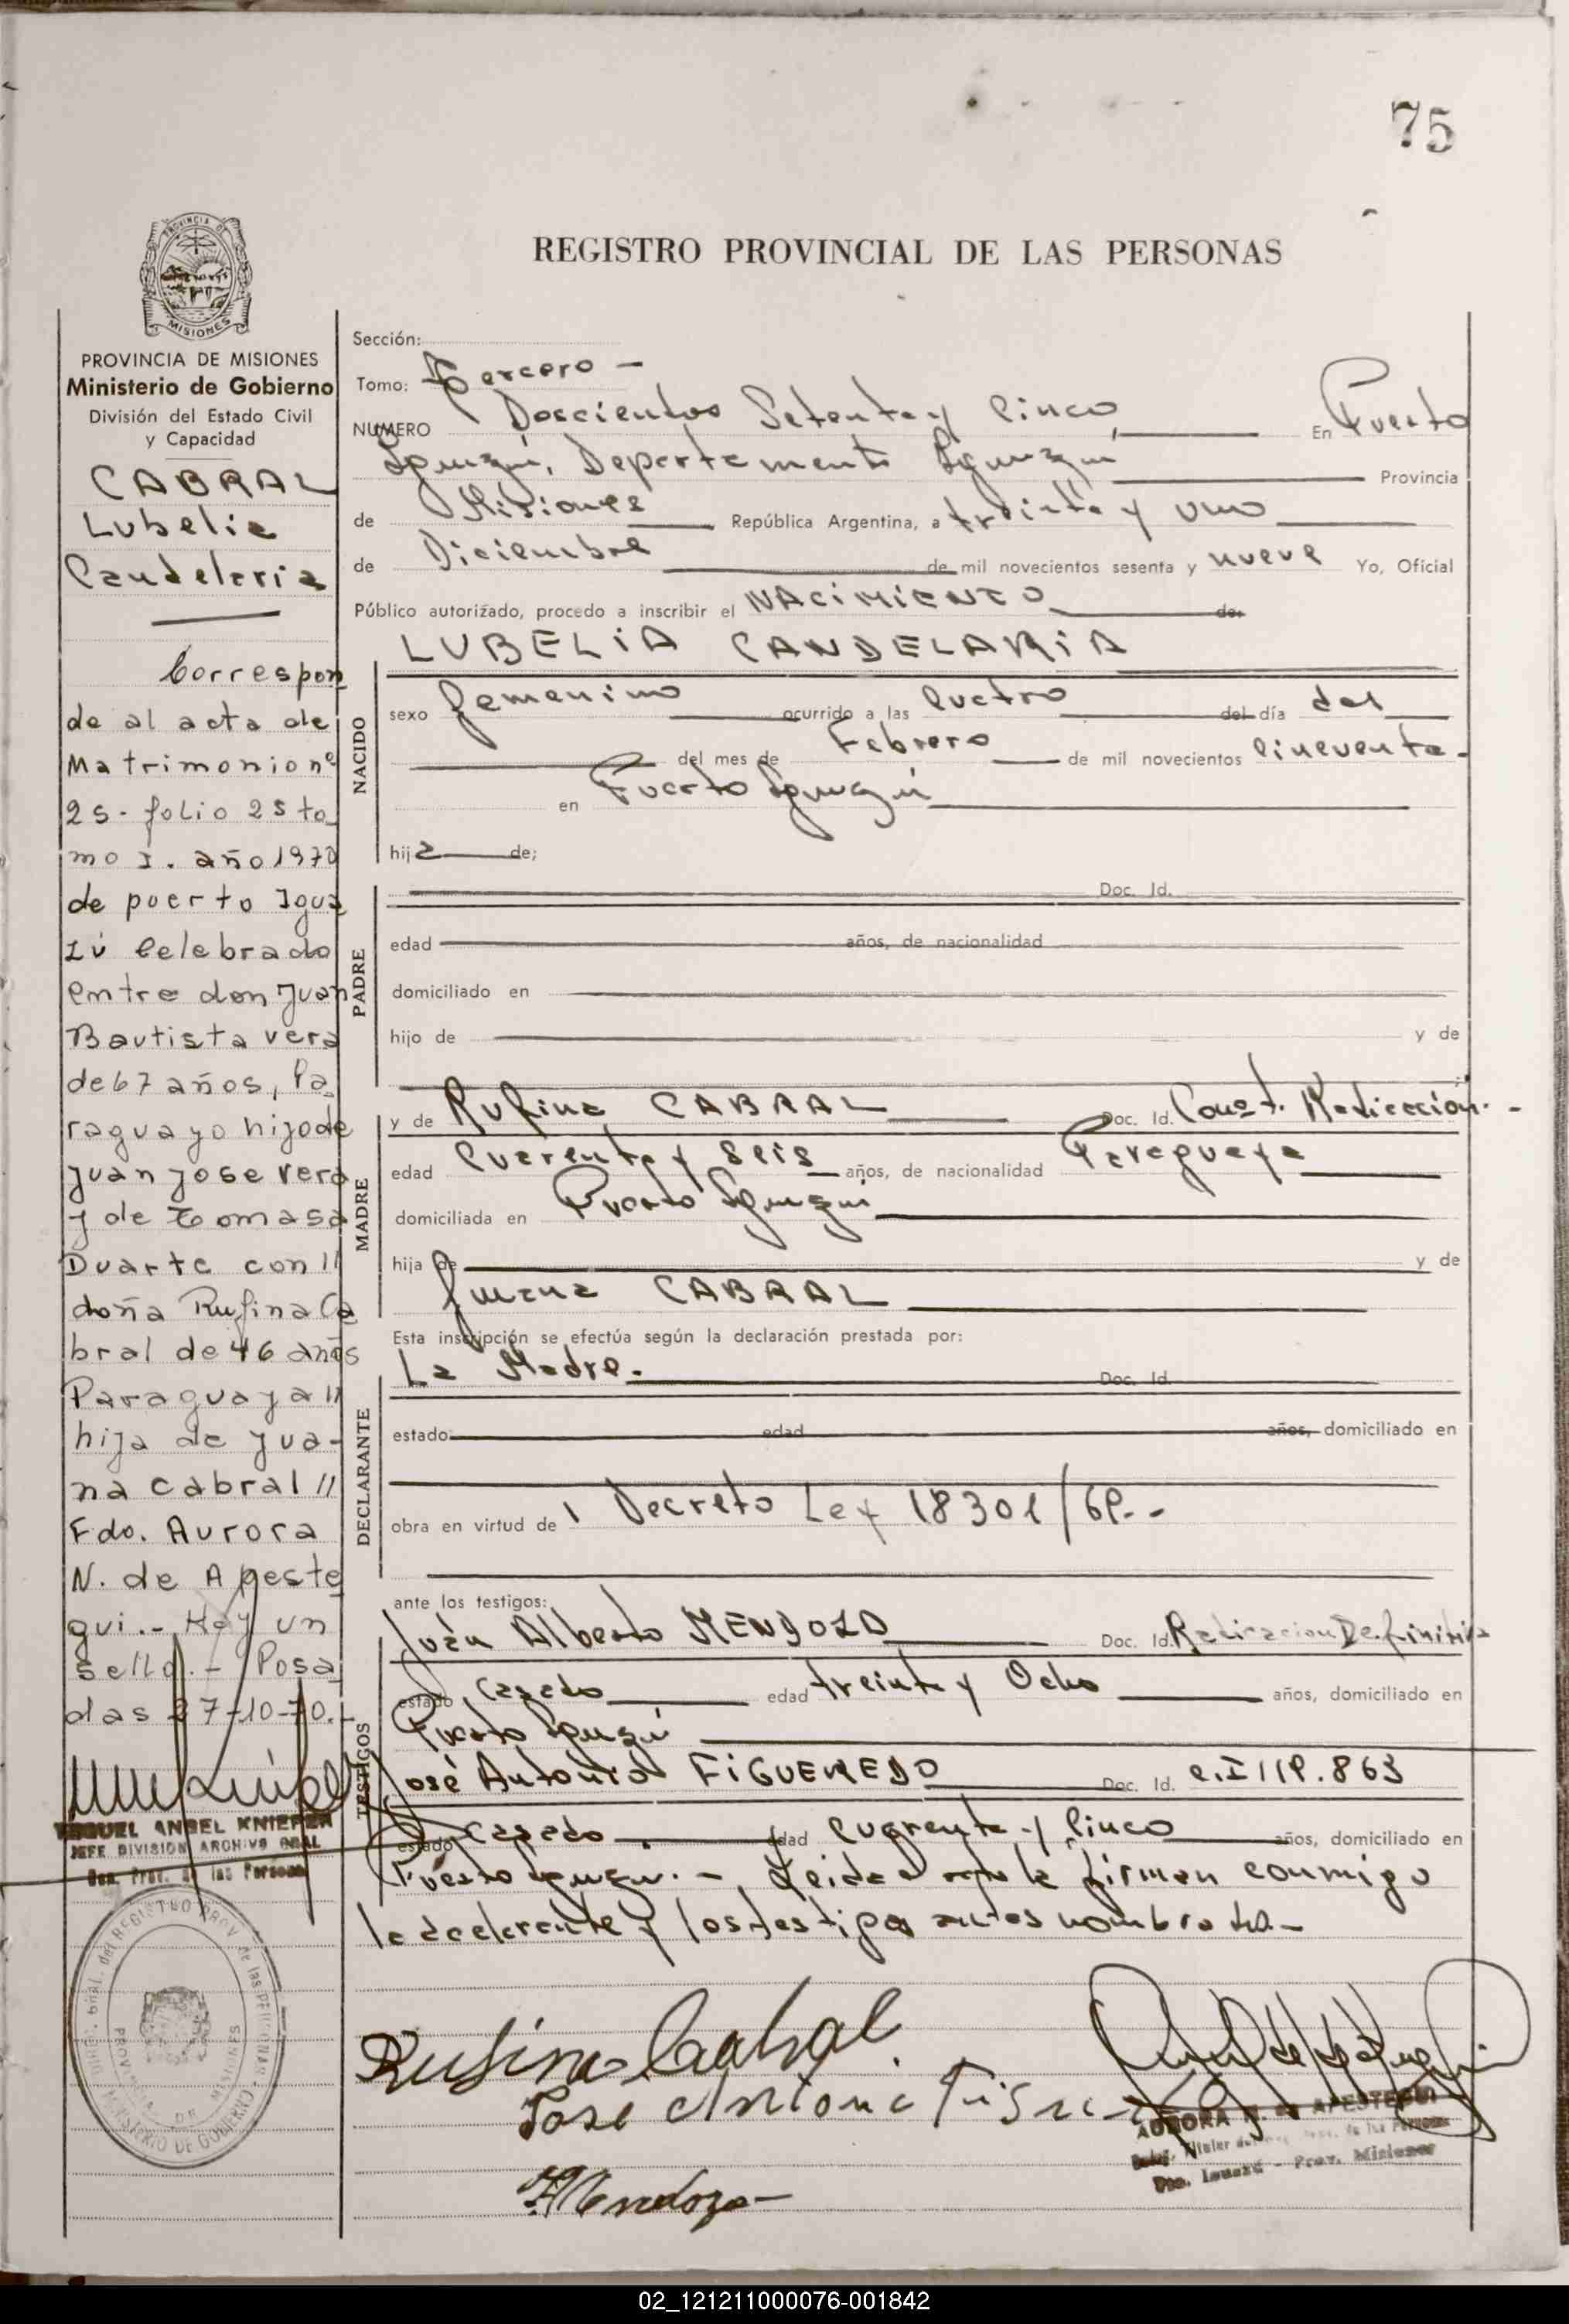 75
PROVINCIA DE MISIONES
REGISTRO PROVINCIAL DE LAS PERSONAS
PROVINCIA DE MISIONES
Ministerio de Gobierno
División del Estado Civil
y Capacidad
CABRAL
Lubelia
Candelaria
Correspon
de al acta de
Matrimonio nº
25 - folio 25 to
mo I. año 1970
de puerto Igua
zú Celebrado
entre don Juan
Bautista vera
de 67 años, Pa
raguayo hijo de
Juan Jose vera
y de Tomasa
Duarte con //
doña Rufina Ca
bral de 46 años
Paraguaya //
hija de Jua-
na Cabral //
Fdo. Aurora
N. de Apeste
gui.- Hay un
sello.- Posa
das 27-10-70.-
MIGUEL ANGEL KNIEPER
JEFE DIVISION ARCHIVO GRAL
Gen. Prov. de las Personas
Sección:
Tomo: Tercero -
NUMERO Doscientos Setenta y Cinco En Puerto
Iguazú, Departamento Iguazú Provincia
de Misiones República Argentina, a treinta y uno
de Diciembre de mil novecientos sesenta y nueve Yo, Oficial
Público autorizado, procedo a inscribir el NACIMIENTO de:
LUBELIA CANDELARIA
NACIDO
sexo femenino ocurrido a las cuatro del día dos
del mes de Febrero de mil novecientos cincuenta.
en Puerto Iguazú
hija de;
PADRE
Doc. Id.
edad años, de nacionalidad
domiciliado en
hijo de y de
MADRE
y de Rufina CABRAL Doc. Id. Const. Radicación.-
edad Cuarenta y Seis años, de nacionalidad Paraguaya
domiciliada en Puerto Iguazú
hija de y de
Juana CABRAL
Esta inscripción se efectúa según la declaración prestada por:
DECLARANTE
La Madre. Doc. Id.
estado edad años, domiciliado en
obra en virtud de Decreto Ley 18301/69.-
ante los testigos:
TESTIGOS
Juan Alberto MENDOZA Doc. Id. Radicacion Definitiva
estado Casado edad treinta y Ocho años, domiciliado en
Puerto Iguazú
José Antonio FIGUEREDO Doc. Id. C.I 119.863
estado Casado edad Cuarenta y Cinco años, domiciliado en
Puerto Iguazú.- Leida el acta la firman conmigo
la declarante y los testigos antes nombrados.-
Rufina Cabral
Jose Antonio
Mendoza
AURORA N. de APESTEGUI
Dto. Iguazú - Prov. Misiones
02_121211000076-001842